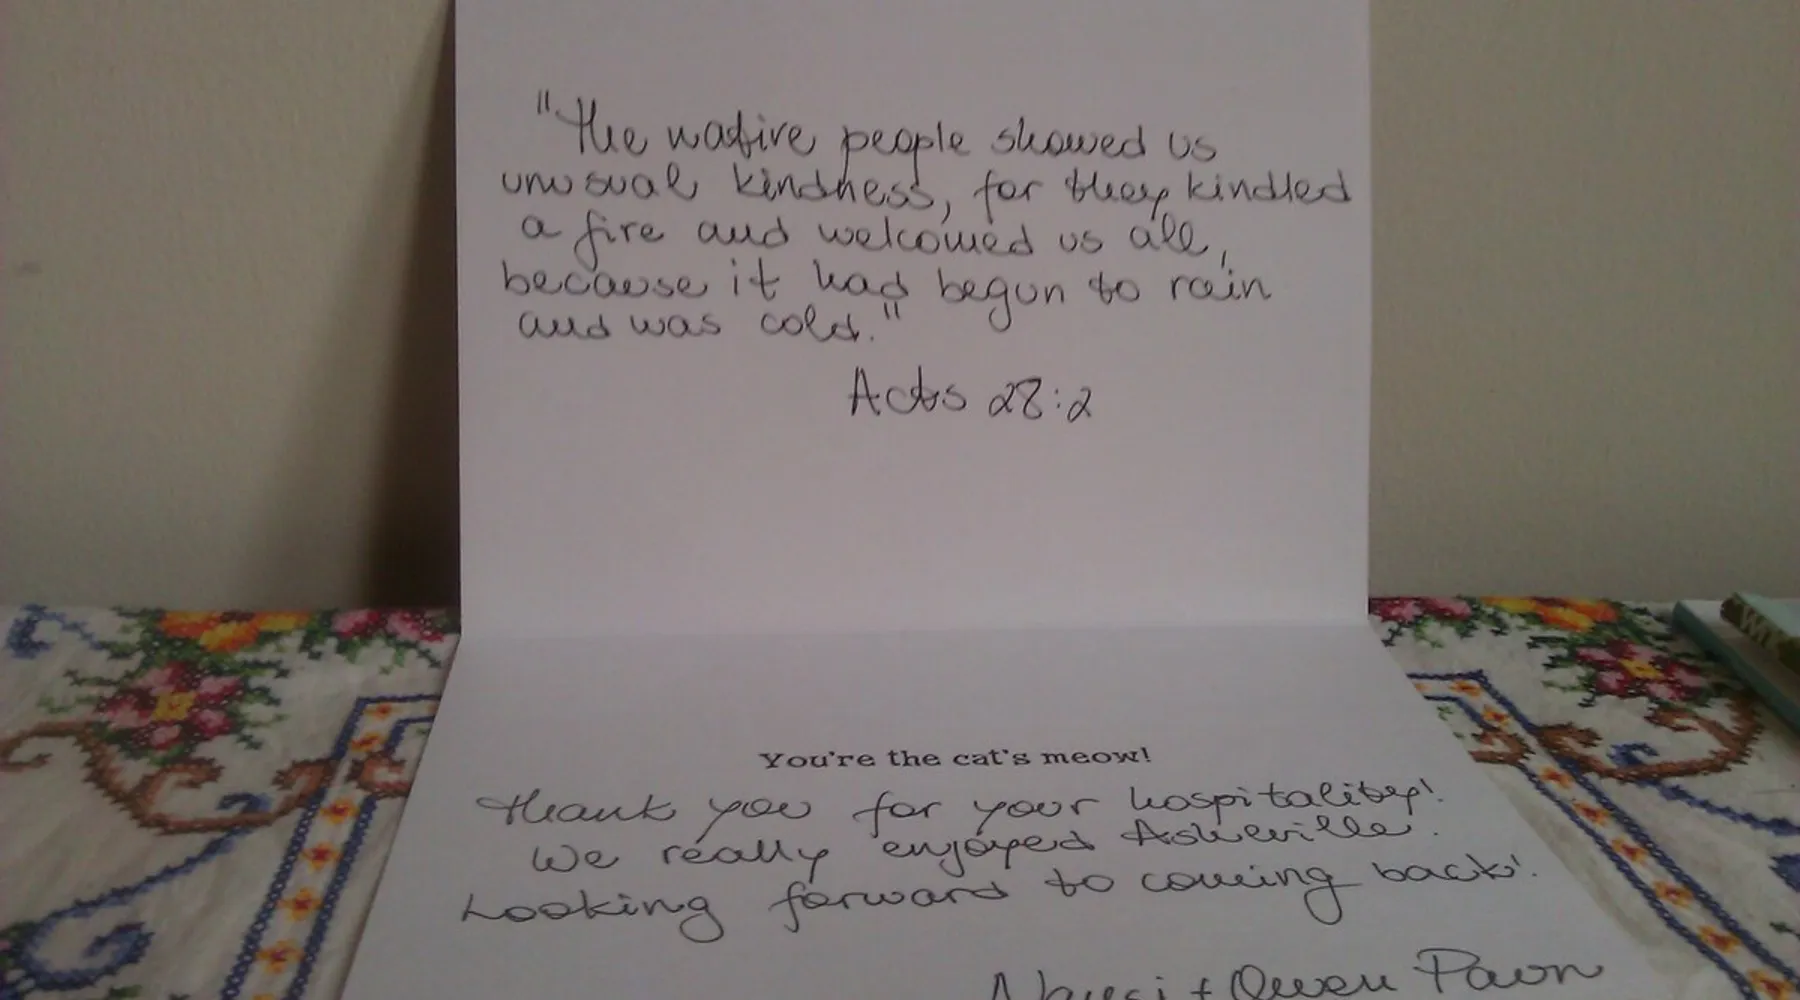 "The native people showed us
unusual kindness, for they kindled
a fire and welcomed us all,
because it had begun to rain
and was cold."
Acts 28:2
You're the cat's meow!
Thank you for your hospitality!
We really enjoyed Asheville.
Looking forward to coming back!
+ Owen